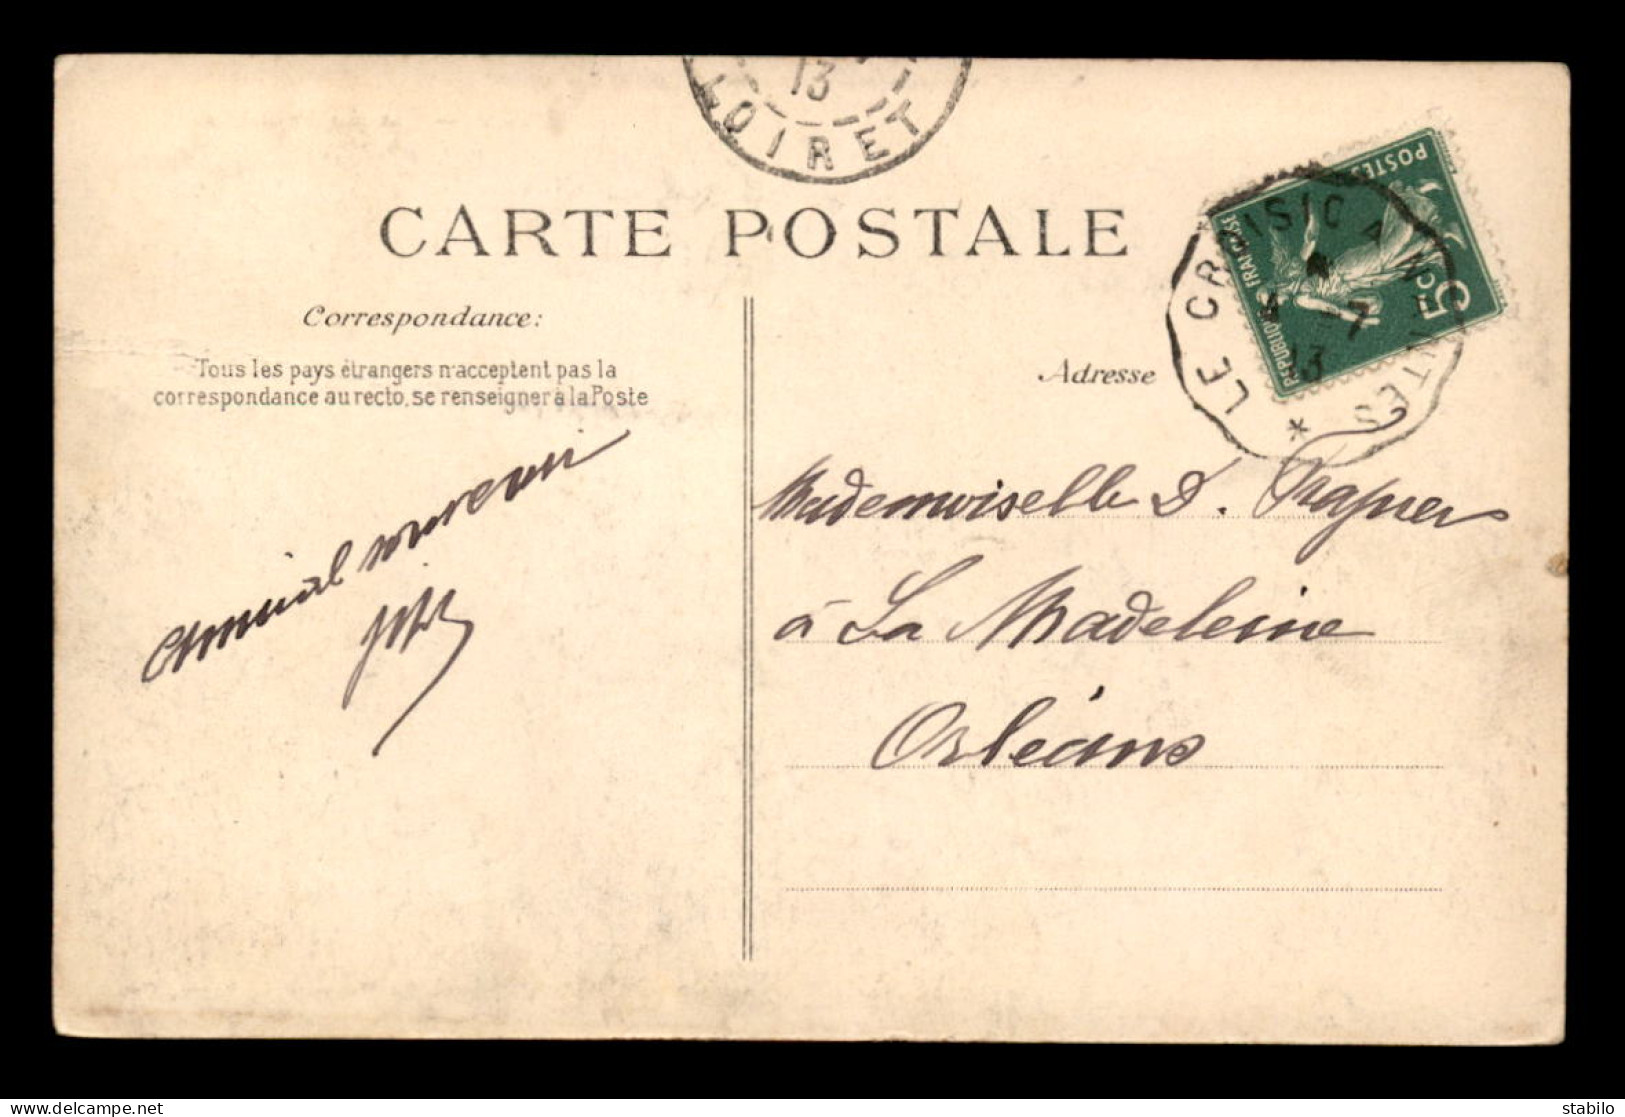 13
LOIRET
CARTE POSTALE
POSTES
RÉPUBLIQUE FRANÇAISE
5c
LE CROISIC A NANTES
-7
13
*
Correspondance:
Tous les pays étrangers n'acceptent pas la
correspondance au recto, se renseigner à la Poste
Adresse
Amical souvenir
Mademoiselle D.
à La Madeleine
Orléans
delcampe.net
stabilo